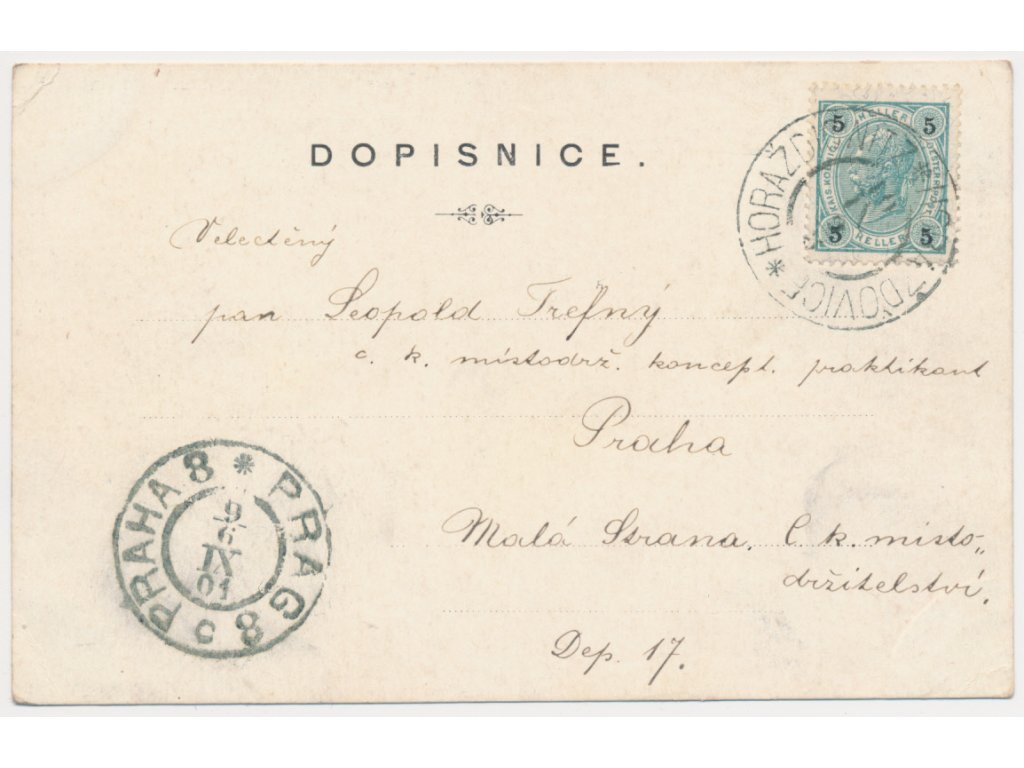 DOPISNICE.
5 HELLER 5
5 HELLER 5
* HORAŽĎOVICE
Velectěný
pan Leopold Trěfný
c. k. místodrž. koncept. praktikant
Praha
Malá Strana. C k. místo-„
držitelství.
Dep. 17.
PRAHA 8 * PRAG 8 c
9
IX
01